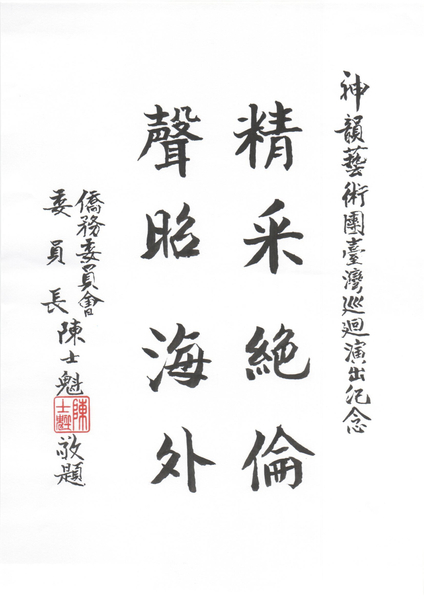 神韻藝術團臺灣巡迴演出紀念
精采絕倫
聲昭海外
僑務委員會
委員長陳士魁敬題
陳士魁